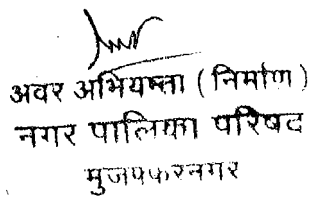 अवर अभियन्ता (निर्माण)
नगर पालिका परिषद
मुजफ्फरनगर